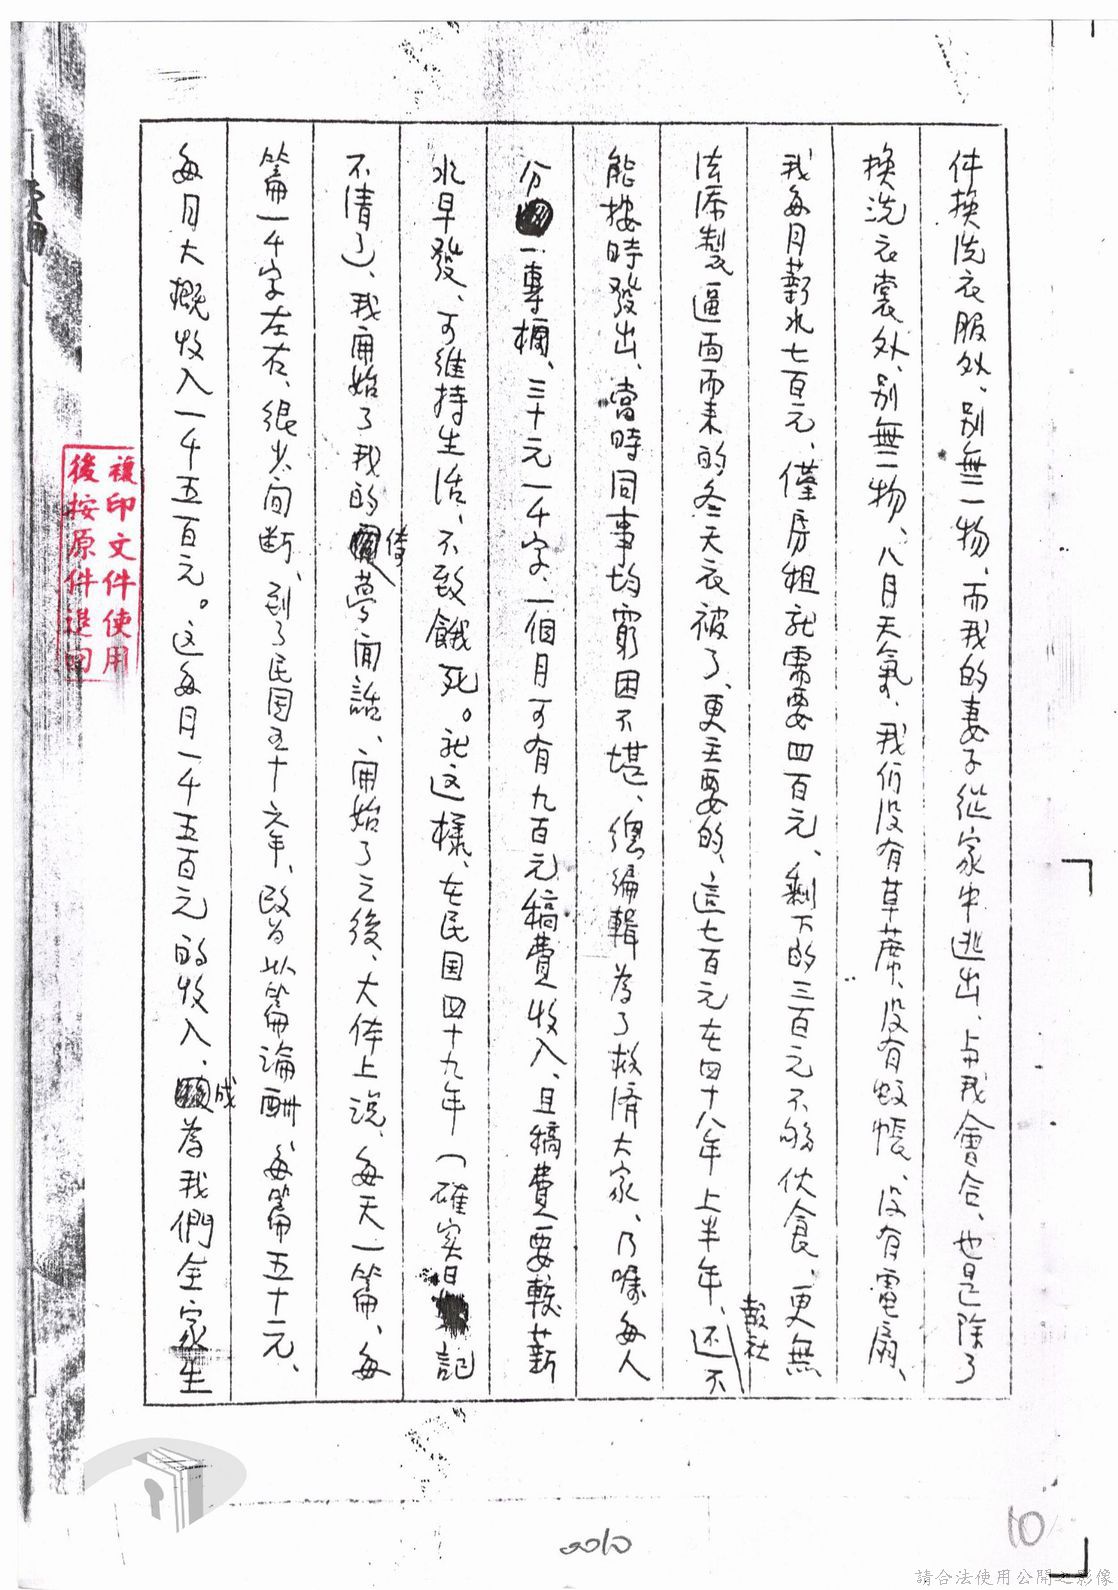 件換洗衣服外、別無一物、而我的妻子從家中逃出、与我會合、也是除了
換洗衣裳外、別無二物、八月天氣、我们没有草蓆、没有蚊帳、没有電扇、
我每月薪水七百元、僅房租就需要四百元、剩下的三百元不夠伙食、更無
法添製逼面而来的冬天衣被了、更主要的、這七百元在四十八年上半年、报社还不
能按時發出、當時同事均窮困不堪、總編輯為了救濟大家、乃嘱每人
分一專欄、三十元一千字、一個月可有九百元稿費收入、且稿費要較薪
水早發、可維持生活、不致餓死。就这樣、在民国四十九年（確实日記
不清了）、我開始了我的倚夢閒話、開始了之後、大体上说、每天一篇、每
篇一千字左右、很少间断、到了民国五十六年、改为以篇論酬、每篇五十元、
每月大概收入一千五百元。这每月一千五百元的收入、成為我們全家生
複印文件使用
後按原件退回
0010
10
請合法使用公開之影像